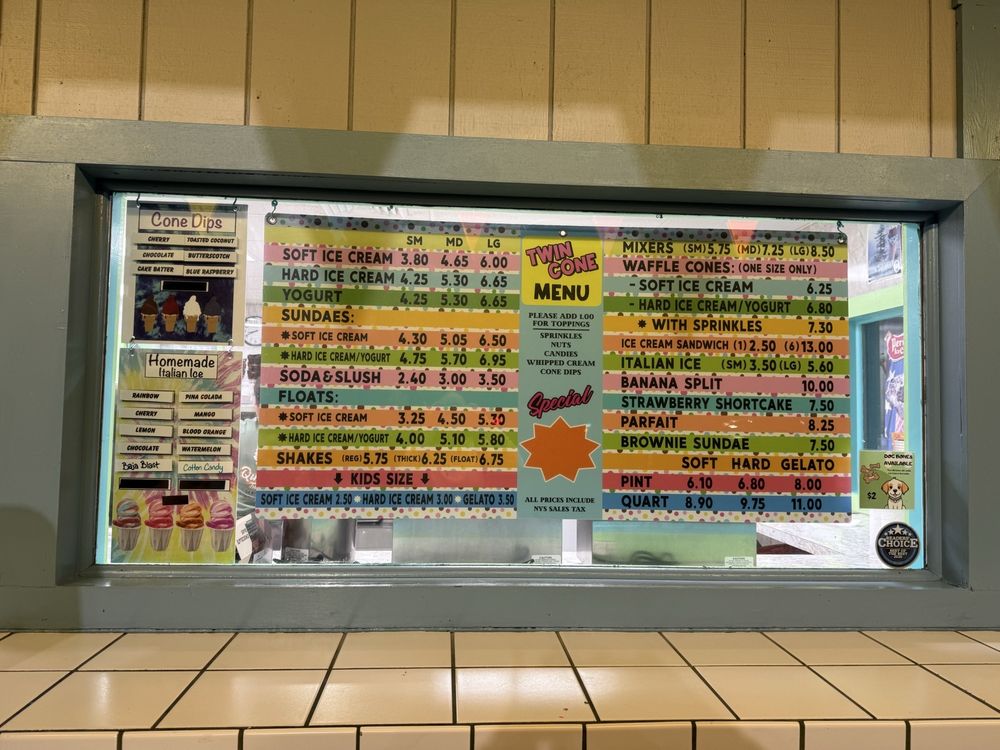 Cone Dips
CHERRY TOASTED COCONUT
CHOCOLATE BUTTERSCOTCH
CAKE BATTER BLUE RASPBERRY
Homemade
Italian Ice
RAINBOW PINA COLADA
CHERRY MANGO
LEMON BLOOD ORANGE
CHOCOLATE WATERMELON
Baja Blast Cotton Candy
SM MD LG
SOFT ICE CREAM 3.80 4.65 6.00
HARD ICE CREAM 4.25 5.30 6.65
YOGURT 4.25 5.30 6.65
SUNDAES:
SOFT ICE CREAM 4.30 5.05 6.50
HARD ICE CREAM/YOGURT 4.75 5.70 6.95
SODA & SLUSH 2.40 3.00 3.50
FLOATS:
SOFT ICE CREAM 3.25 4.50 5.30
HARD ICE CREAM/YOGURT 4.00 5.10 5.80
SHAKES (REG) 5.75 (THICK) 6.25 (FLOAT) 6.75
KIDS SIZE
SOFT ICE CREAM 2.50 HARD ICE CREAM 3.00 GELATO 3.50
TWIN
CONE
MENU
PLEASE ADD 1.00
FOR TOPPINGS
SPRINKLES
NUTS
CANDIES
WHIPPED CREAM
CONE DIPS
Special
ALL PRICES INCLUDE
NYS SALES TAX
MIXERS (SM) 5.75 (MD) 7.25 (LG) 8.50
WAFFLE CONES: (ONE SIZE ONLY)
- SOFT ICE CREAM 6.25
- HARD ICE CREAM/YOGURT 6.80
WITH SPRINKLES 7.30
ICE CREAM SANDWICH (1) 2.50 (6) 13.00
ITALIAN ICE (SM) 3.50 (LG) 5.60
BANANA SPLIT 10.00
STRAWBERRY SHORTCAKE 7.50
PARFAIT 8.25
BROWNIE SUNDAE 7.50
SOFT HARD GELATO
PINT 6.10 6.80 8.00
QUART 8.90 9.75 11.00
DOG BONES
AVAILABLE
$2
READERS'
CHOICE